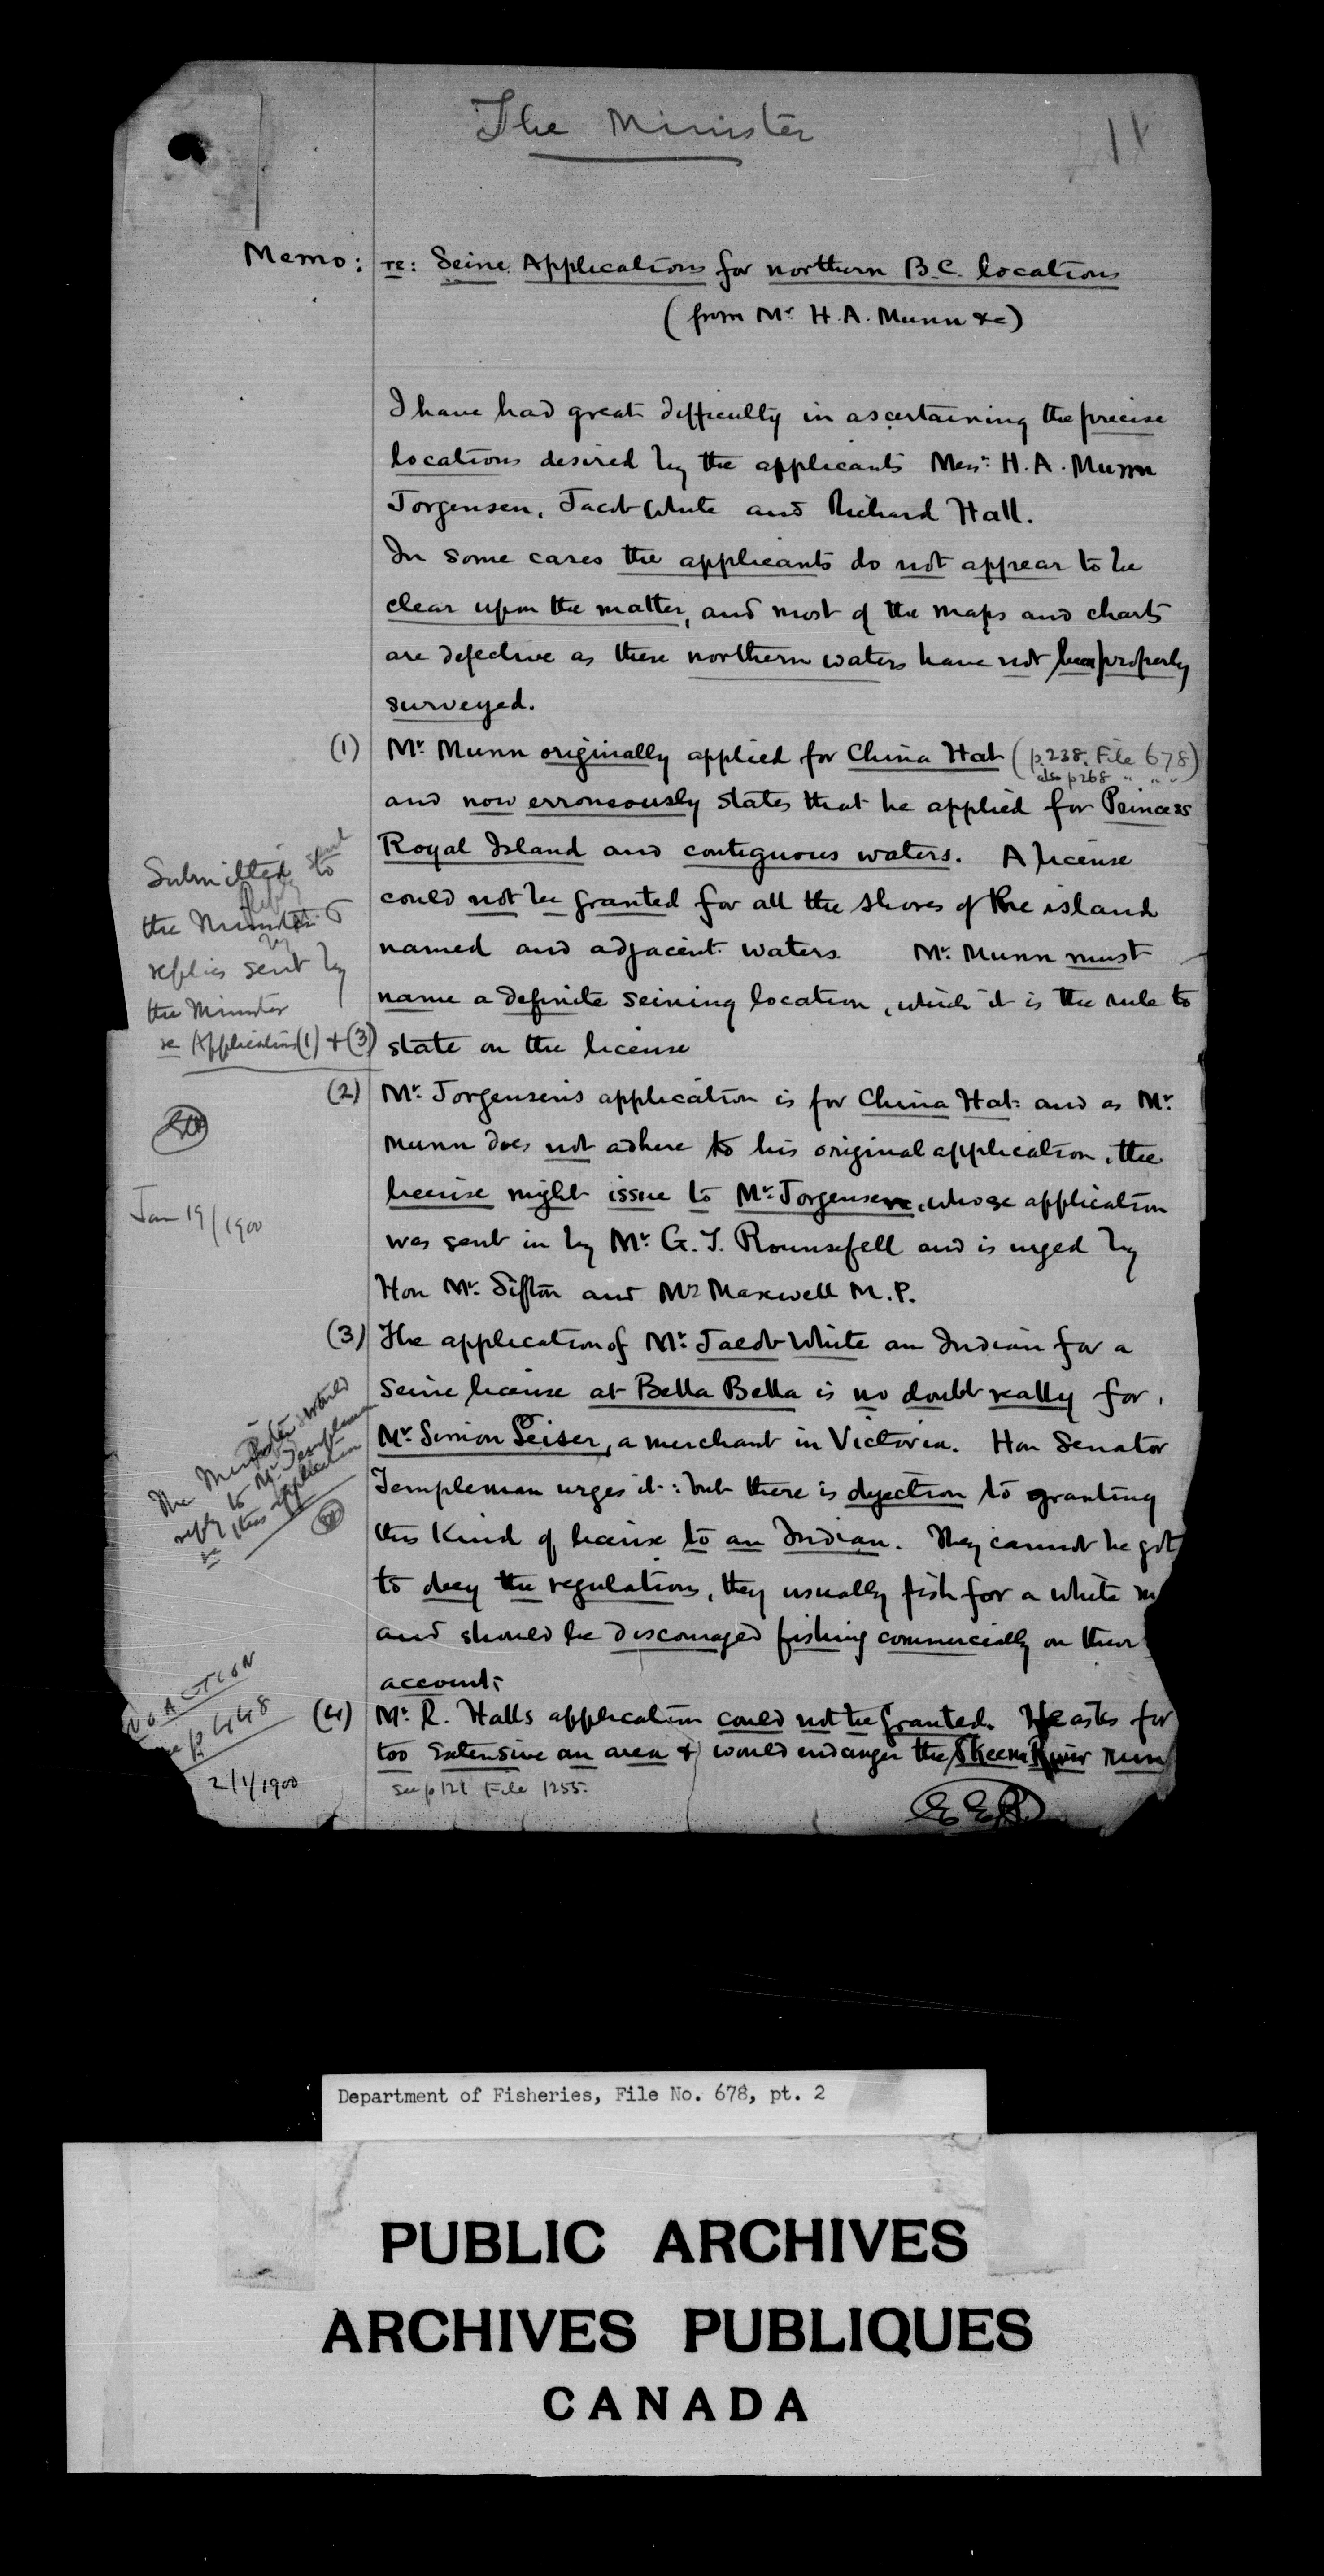 The Minister
11
Memo: re: Seine Applications for northern B.C. locations
(from Mr. H.A. Munn &c)
I have had great difficulty in ascertaining the precise
locations desired by the applicants Messrs. H.A. Munn
Jorgensen, Jacob White and Richard Hall.
In some cases the applicants do not appear to be
clear upon the matter, and most of the maps and charts
are defective as these northern waters have not been properly
surveyed.
(1) Mr. Munn originally applied for China Hat (p.238. File 678)
also p268 " " "
and now erroneously states that he applied for Princess
Royal Island and contiguous waters. A license
could not be granted for all the shores of the island
named and adjacent waters. Mr. Munn must
name a definite seining location, which it is the rule to
state on the license
Submitted to
the Minister &
replies sent by
the Minister
re Application (1) + (3)
(2) Mr. Jorgensen's application is for China Hat: and as Mr.
Munn does not adhere to his original application, the
license might issue to Mr. Jorgensen, whose application
was sent in by Mr. G.T. Rounsefell and is urged by
Hon Mr. Sifton and Mr Maxwell M.P.
Jan 19/1900
(3) The application of Mr. Jacob White an Indian for a
Seine license at Bella Bella is no doubt really for,
Mr. Simon Leiser, a merchant in Victoria. Hon Senator
Templeman urges it: but there is objection to granting
this kind of license to an Indian. They cannot be got
to obey the regulations, they usually fish for a white m
and should be discouraged fishing commercially on their
account;
The Minister would
reply to Mr. Templeman
re this application
(4) Mr. R. Halls application could not be granted. He asks for
too extensive an area & would endanger the Skeena River run
see p 121 File 1255.
NO ACTION
p 448
2/1/1900
EEP
Department of Fisheries, File No. 678, pt. 2
PUBLIC ARCHIVES
ARCHIVES PUBLIQUES
CANADA